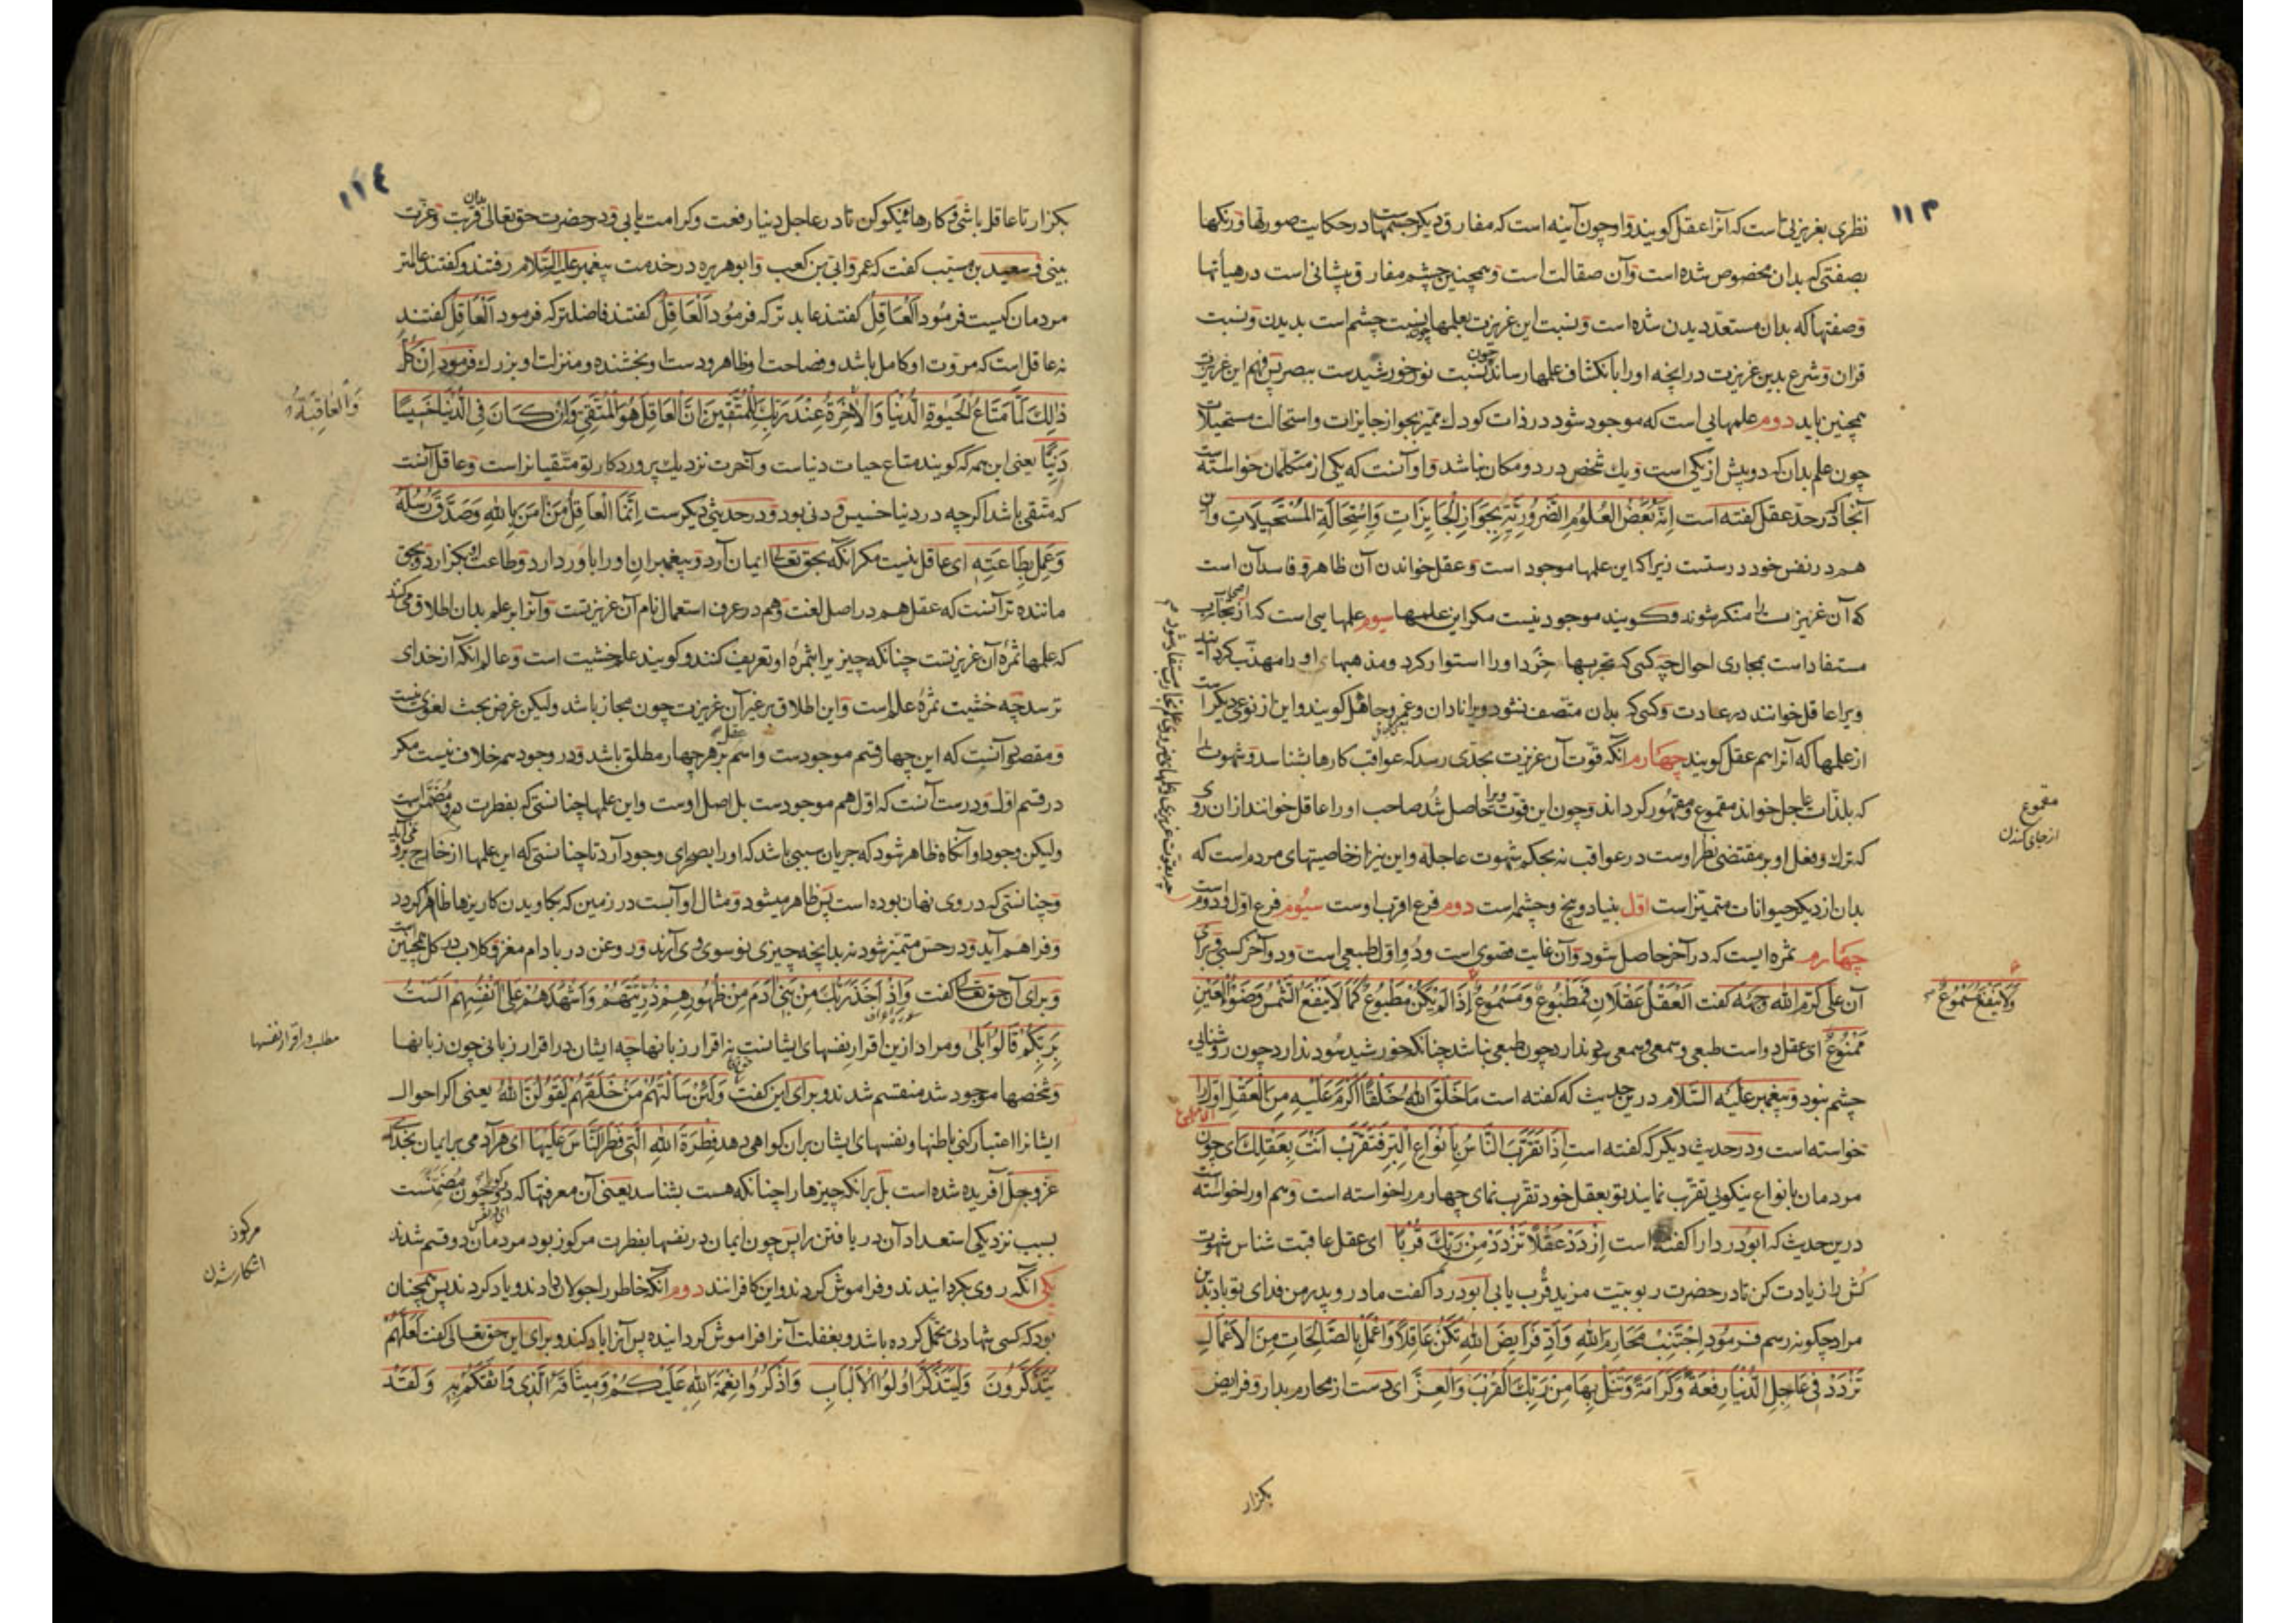 ۱۱۳
نظری بغریزتی است که آنرا عقل کویند و او چون آینه است که مفارق دیکر جسمهاست در حکایت صورتها و رنکها
بصفتی که بدان مخصوص شده است و آن صقالت است و همچنین چشم مفارق پیشانی است در هیأتها
وصفتها که بدان مستعد دیدن شده است و نسبت این غریزت بعلمها چون نسبت چشم است بدیدن و نسبت
قران و شرع بدین غریزت در انچه او را بانکشاف علمها رساند چون نسبت نور خورشیدست ببصر پس فهم این غریزت
همچنین باید دوم علمهایی است که موجود شود در ذات کودک ممیز بجواز جایزات و استحالت مستحیلات
چون علم بدان که دو بیش از یکی است و یک شخص در دو مکان نباشد و او آنست که یکی از متکلمان خواسته است
آنجا که در حدّ عقل کفته است اِنَّهُ بَعْضُ العُلُومِ الضَّرُورِیَّةِ بِجَوَازِ الْجَایِزَاتِ وَاسْتِحَالَةِ المُسْتَحِیلَاتِ و آن
هم در نفس خود درستست زیرا که این علمها موجود است و عقل خواندن آن ظاهر و فاسد آن است
که آن غریزت را منکر شوند و کویند موجود نیست مکر این علمها سیوم علمهایی است که از تجارب
مستفاد است بمجاری احوال چه کسی که تجربها خرد او را استوار کرد و مذهبهای او را مهذب کردانید
ویرا عاقل خوانند در عادت و کسی که بدان متصف نشود ویرا نادان و غمر و جاهل کویند و این از نوعی دیکر است
از علمها که آنرا اسم عقل کویند چهارم آنکه قوّت آن غریزت بحدّی رسد که عواقب کارها بشناسد و شهوت را
که بلذات عاجل خواند مقموع و مقهور کرداند و چون این قوت ویرا حاصل شد صاحب او را عاقل خوانند از ان روی
که ترک و فعل او بر مقتضی نظر اوست در عواقب نه بحکم شهوت عاجله و این نیز از خاصیتهای مردم است که
بدان از دیکر حیوانات متمیز است اول بنیاد و بیخ و چشمه است دوم فرع اقرب اوست سیوم فرع اول و دوم است
چهارم ثمره ایست که در آخر حاصل شود و آن غایت قصوی است و دو اول طبیعی است و دو آخر کسبی و برای
آن علی کرم الله وجهه کفت اَلْعَقْلُ عَقْلَانِ فَمَطْبُوعٌ وَمَسْمُوعٌ اِذَا لَمْ یَکُنْ مَطْبُوعٌ کَمَا لَا یَنْفَعُ الشَّمْسُ وَضَوْءُ الْعَیْنِ
مَمْنُوعٌ ای عقل دو است طبعی و سمعی و سمعی سود ندارد چون طبعی نباشد چنانکه خورشید سود ندارد چون روشنایی
چشم نبود و پیغمبر علیه السّلام درین حدیث که کفته است مَا خَلَقَ اللهُ خَلْقًا اَکْرَمَ عَلَیْهِ مِنَ الْعَقْلِ اوّل را
خواسته است و در حدیث دیکر که کفته است اِذَا تَقَرَّبَ النَّاسُ بِاَنْوَاعِ البِرِّ فَتَقَرَّبْ اَنْتَ بِعَقْلِکَ ای چون
مردمان بانواع نیکویی تقرّب نمایند تو بعقل خود تقرّب نمای چهارم را خواسته است و هم او را خواسته است
درین حدیث که ابودردا را کفته است اِزْدَدْ عَقْلًا تَزْدَدْ مِنْ رَبِّکَ قُرْبًا ای عقل عاقبت شناس شهوت
کش را زیادت کن تا در حضرت ربوبیت مزید قُرب یابی ابودردا کفت مادر و پدر من فدای تو باد این
مرا چکونه رسم فرمود اِجْتَنِبْ مَحَارِمَ اللهِ وَاَدِّ فَرَایِضَ اللهِ تَکُنْ عَاقِلًا وَاعْمَلْ بِالصَّالِحَاتِ مِنَ الْاَعْمَالِ
تَزْدَدْ فِی عَاجِلِ الدُّنْیَا رِفْعَةً وَکَرَامَةً وَتَنَلْ بِهَا مِنْ رَبِّکَ القُرْبَ وَالْعِزَّ ای دست از محارم بدار و فرایض
بکزار
مقموع
از جای کندن
وَلَا یَنْفَعُ مَسْمُوعٌ
۱۱٤
بکزار تا عاقل باشی و کارهای نیکو کن تا در عاجل دنیا رفعت و کرامت یابی و در حضرت حق تعالی بدان قربت و عزت
بینی و سعید بن مسیّب کفت که عمر و ابی بن کعب و ابوهریره در خدمت پیغمبر علیه السّلام رفتند و کفتند عالمتر
مردمان کیست فرمُود اَلْعَاقِلُ کفتند عابدتر که فرمُود اَلْعَاقِلُ کفتند فاضلتر که فرمود اَلْعَاقِلُ کفتند
نه عاقل است که مروت او کامل باشد و فصاحت او ظاهر و دست او بخشنده و منزلت او بزرک فرمود اِنْ کُلُّ
ذٰلِکَ لَمَّا مَتَاعُ الْحَیٰوةِ الدُّنْیَا وَالْاٰخِرَةُ عِنْدَ رَبِّکَ لِلْمُتَّقِینَ اِنَّ العَاقِلَ هُوَ الْمُتَّقِی وَاِنْ کَانَ فِی الدُّنْیَا خَسِیسًا
دَنِیًّا یعنی این همه که کویند متاع حیات دنیاست و آخرت نزدیک پروردکار تو متقیانراست و عاقل آنست
که متقی باشد اکرچه در دنیا خسیس و دنی بود و در حدیثی دیکرست اِنَّمَا الْعَاقِلُ مَنْ اٰمَنَ بِاللهِ وَصَدَّقَ رُسُلَهُ
وَعَمِلَ بِطَاعَتِهِ ای عاقل نیست مکر انکه بحق تعالی ایمان آرد و پیغمبران او را باور دارد و طاعت او بکزارد و بحق
ماننده تر آنست که عقل هم در اصل لغت و هم در عرف استعمال نام آن غریزتست و آنرا بر علم بدان اطلاق می کنند
که علمها ثمرهٔ آن غریزتست چنانکه چیز را بثمرهٔ او تعریف کنند و کویند علم خشیت است و عالم انکه از خدای
ترسد چه خشیت ثمرهٔ علم است و این اطلاق بر غیر آن غریزت چون مجاز باشد ولیکن غرض بحث لغوی نیست
و مقصود آنست که این چهار قسم موجودست و اسم عقل بر هر چهار مطلق باشد و در وجود هم خلاف نیست مکر
در قسم اول و درست آنست که اول هم موجودست بل اصل اوست و این علمها چنانستی که بفطرت درو مُضَمَّن است
ولیکن وجود او آنکاه ظاهر شود که جریان سببی باشد که او را بصحرای وجود آرد تا چنانستی که این علمها از خارج برو نمی آید
و چنانستی که در وی نهان بوده است پس ظاهر میشود و مثال او آبست در زمین که بکاویدن کاریزها ظاهر کردد
و فراهم آید و در حس متمیز شود نه بدانچه چیزی نو سوی وی آرند و روغن در بادام مغز و کلاب در کل همچنین است
و برای آن حق تعالی کفت وَاِذْ اَخَذَ رَبُّکَ مِنْ بَنِی اٰدَمَ مِنْ ظُهُورِهِمْ ذُرِّیَّتَهُمْ وَاَشْهَدَهُمْ عَلٰی اَنْفُسِهِمْ اَلَسْتُ
بِرَبِّکُمْ قَالُوْا بَلٰی و مراد ازین اقرار نفسهای ایشانست نه اقرار زبانها چه ایشان در اقرار زبانی چون زبانها
و شخصها موجود شد منقسم شدند و برای این کفت وَلَئِنْ سَاَلْتَهُمْ مَنْ خَلَقَهُمْ لَیَقُوْلُنَّ اللهُ یعنی اکر احوال
ایشانرا اعتبار کنی باطنها و نفسهای ایشان بران کواهی دهد فِطْرَةَ اللهِ الَّتِی فَطَرَ النَّاسَ عَلَیْهَا ای هر آدمی بر ایمان بخدای
عزّ و جلّ آفریده شده است بل بر انکه چیزها را چنانکه هست بشناسد یعنی آن معرفتها که درو چون مُضَمَّنست
بسبب نزدیکی استعداد آن دریافتن را پس چون ایمان در نفسها بفطرت مرکوز بود مردمان دو قسم شدند
یکی آنکه روی بکردانیدند و فراموش کردند و این کافرانند دوم آنکه خاطر را جولان دادند و یاد کردند پس همچنان
بود که کسی شهادتی تحمّل کرده باشد و بغفلت آنرا فراموش کردانیده پس آنرا یاد کند و برای این حق تعالی کفت لَعَلَّهُمْ
یَتَذَکَّرُونَ وَلِیَتَذَکَّرَ اُولُوا الْاَلْبَابِ وَاذْکُرُوا نِعْمَةَ اللهِ عَلَیْکُمْ وَمِیثَاقَهُ الَّذِی وَاثَقَکُمْ بِهِ وَلَقَدْ
وَالْعَاقِبَةُ
مطلب در اقرار نفسها
مرکوز
اشکار شدن